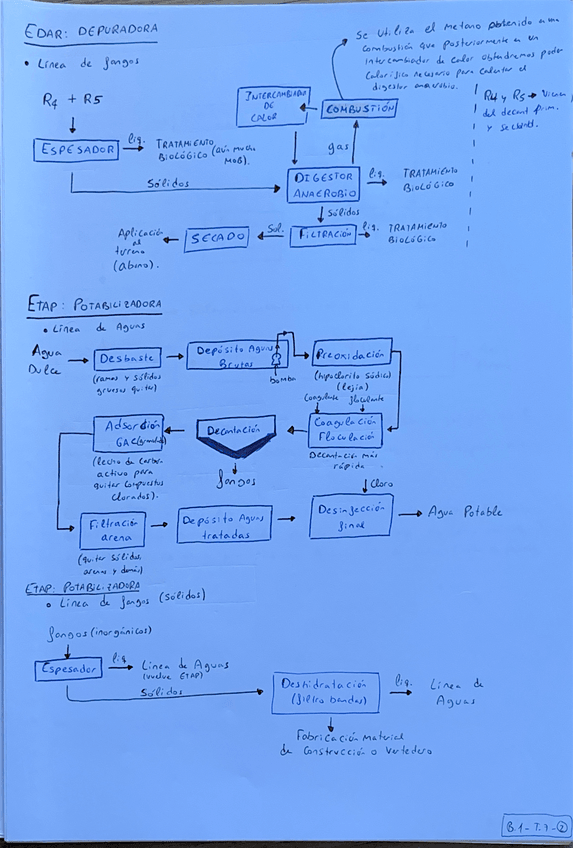 EDAR: DEPURADORA
• Línea de fangos
Se utiliza el metano obtenido a una
combustión que posteriormente en un
intercambiador de calor obtendremos poder
calorífico necesario para calentar el
digestor anaerobio.
R4 + R5
INTERCAMBIADOR
DE
CALOR
COMBUSTIÓN
R4 y R5 → Vienen
del decant. prim.
y secund.
ESPESADOR
liq.
TRATAMIENTO
BIOLÓGICO (aún mucha
MOB).
gas
Sólidos
DIGESTOR
ANAEROBIO
liq.
TRATAMIENTO
BIOLÓGICO
Sólidos
Aplicación
al
terreno
(abono).
SECADO
Sol.
FILTRACIÓN
liq.
TRATAMIENTO
BIOLÓGICO
ETAP: POTABILIZADORA
• Línea de Aguas
Agua
Dulce
Desbaste
(ramas y sólidos
gruesos quitar)
Depósito Aguas
Brutas
bomba
Preoxidación
(hipoclorito sódico)
(lejía)
Coagulante
floculante
Adsorción
GAC (granular)
(lecho de carbón
activo para
quitar compuestos
clorados).
Decantación
fangos
Coagulación
Floculación
Decantación más
rápida.
Cloro
Filtración
arena
(quitar sólidos,
arenas y demás)
Depósito Aguas
tratadas
Desinfección
final
Agua Potable
ETAP: POTABILIZADORA
• Línea de fangos (sólidos)
fangos (inorgánicos)
Espesador
liq
Línea de Aguas
(vuelve ETAP)
Sólidos
Deshidratación
(filtro bandas)
liq.
Línea de
Aguas
Fabricación Material
de Construcción o Vertedero
B.1-T.7-②